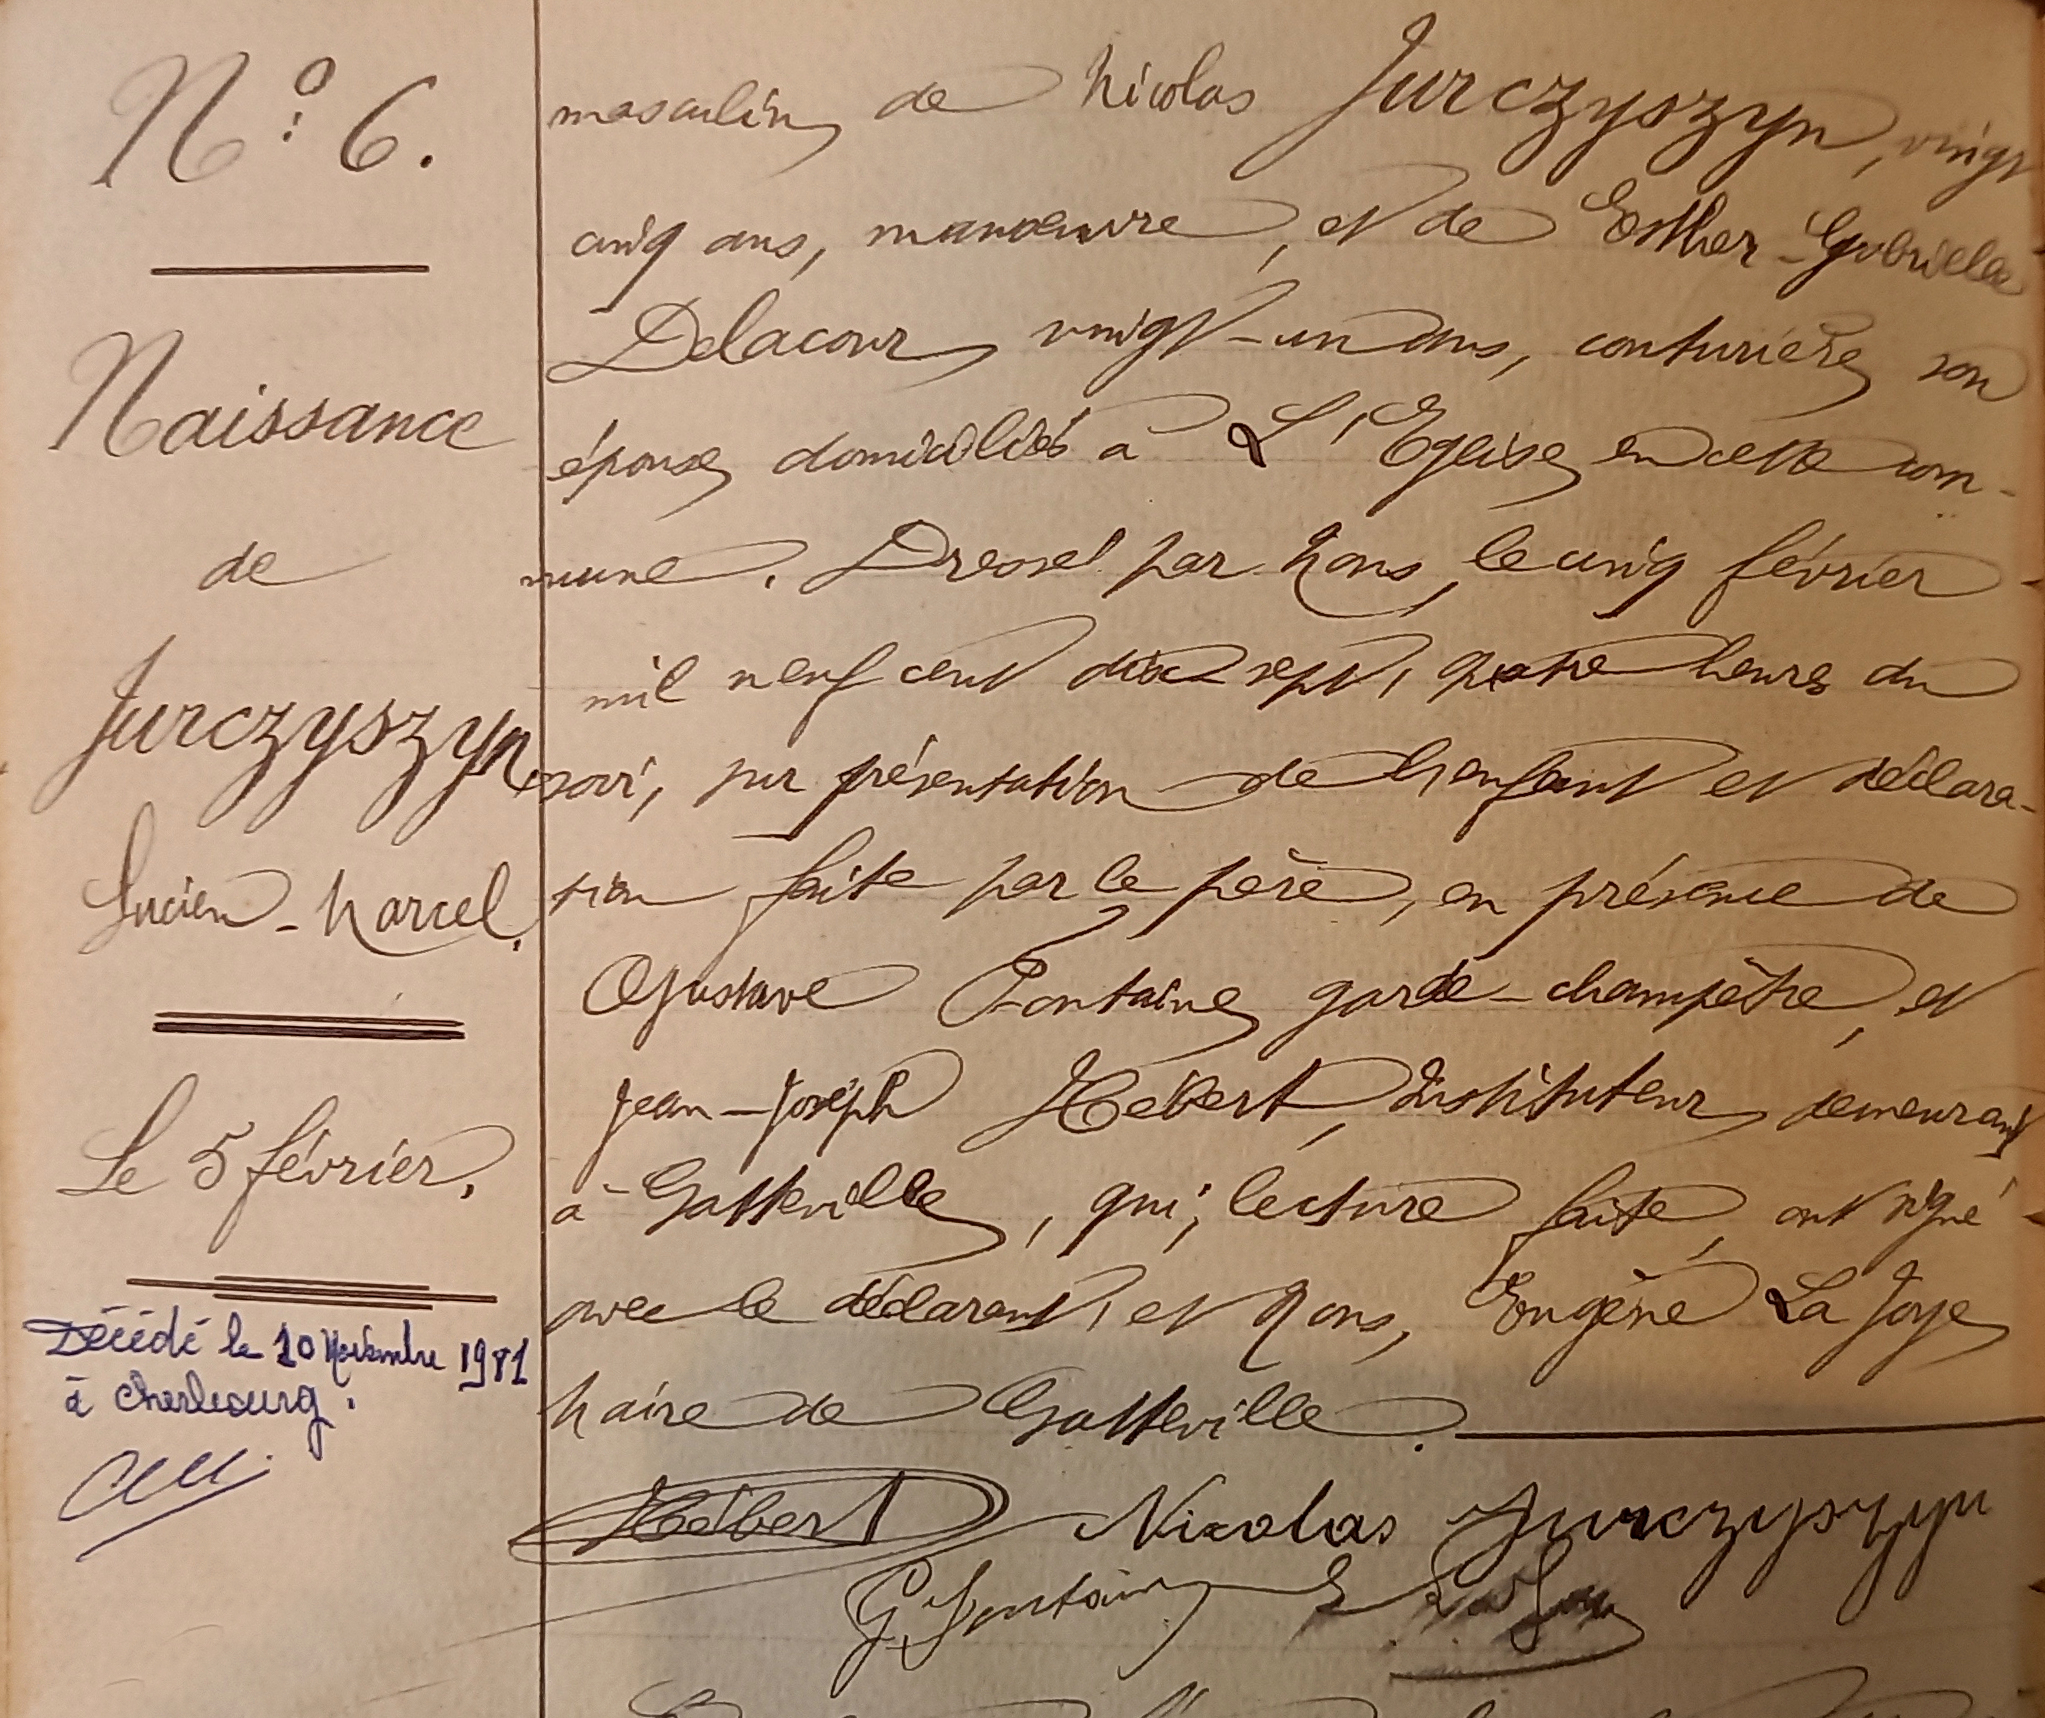 N° 6.
Naissance
de
Jurczyszyn
Lucien-Marcel.
Le 5 février.
Décédé le 10 Novembre 1981
à Cherbourg.
masculin, de Nicolas Jurczyszyn, vingt
cinq ans, manoeuvre, et de Esther-Gabrielle
Delacour, vingt-un ans, couturière, son
épouse, domiciliés à L'Eglise, en cette com-
mune. Dressé par Nous, le cinq février
mil neuf cent dix sept, quatre heures du
soir, sur présentation de l'enfant et déclara-
tion faite par le père, en présence de
Gustave Fontaine, garde-champêtre, et
Jean-Joseph Hébert, Instituteur, demeurant
à Gatteville, qui, lecture faite, ont signé
avec le déclarant, et Nous, Eugène La Joye
Maire de Gatteville.
Hébert Nicolas Jurczyszyn
G. Fontaine